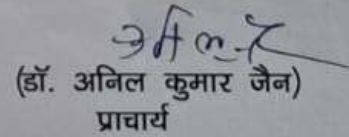 अनिल
(डॉ. अनिल कुमार जैन)
प्राचार्य